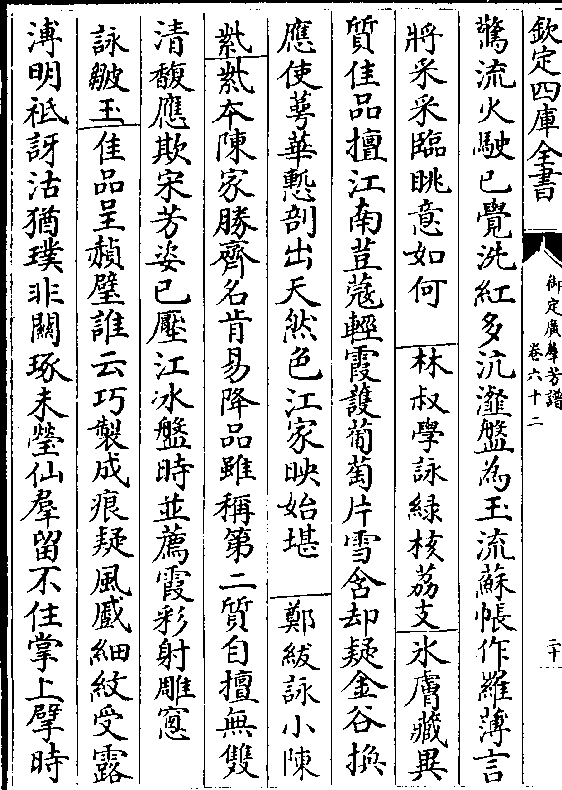 欽定四庫全書
御定廣羣芳譜
卷六十二
二十
驚流火駛已覺洗紅多沆瀣盤為玉流蘇帳作羅薄言
將采采臨眺意如何　林叔學詠綠核荔支氷膚藏異
質佳品擅江南荳蔻輕霞護葡萄片雪含却疑金谷換
應使蕚華慙剖出天然色江家映始堪　鄭紱詠小陳
紫紫本陳家勝齊名肯易降品雖稱第二質自擅無雙
清馥應欺宋芳姿已壓江冰盤時並薦霞彩射雕窻
詠皺玉佳品呈赬璧誰云巧製成痕疑風蹙細紋受露
漙明祗訝沽猶璞非關琢未瑩仙羣留不住掌上擘時